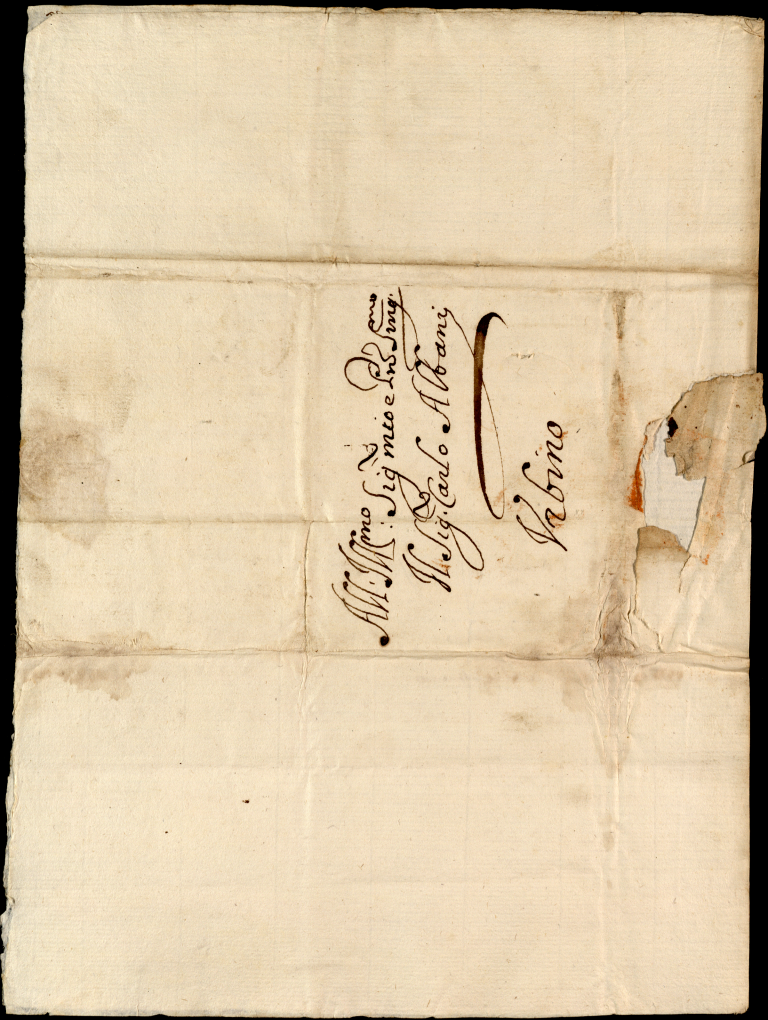 All. Ill:mo Sig.r mio e Pne Sing.mo
Il Sig.r Carlo Albani
Urbino